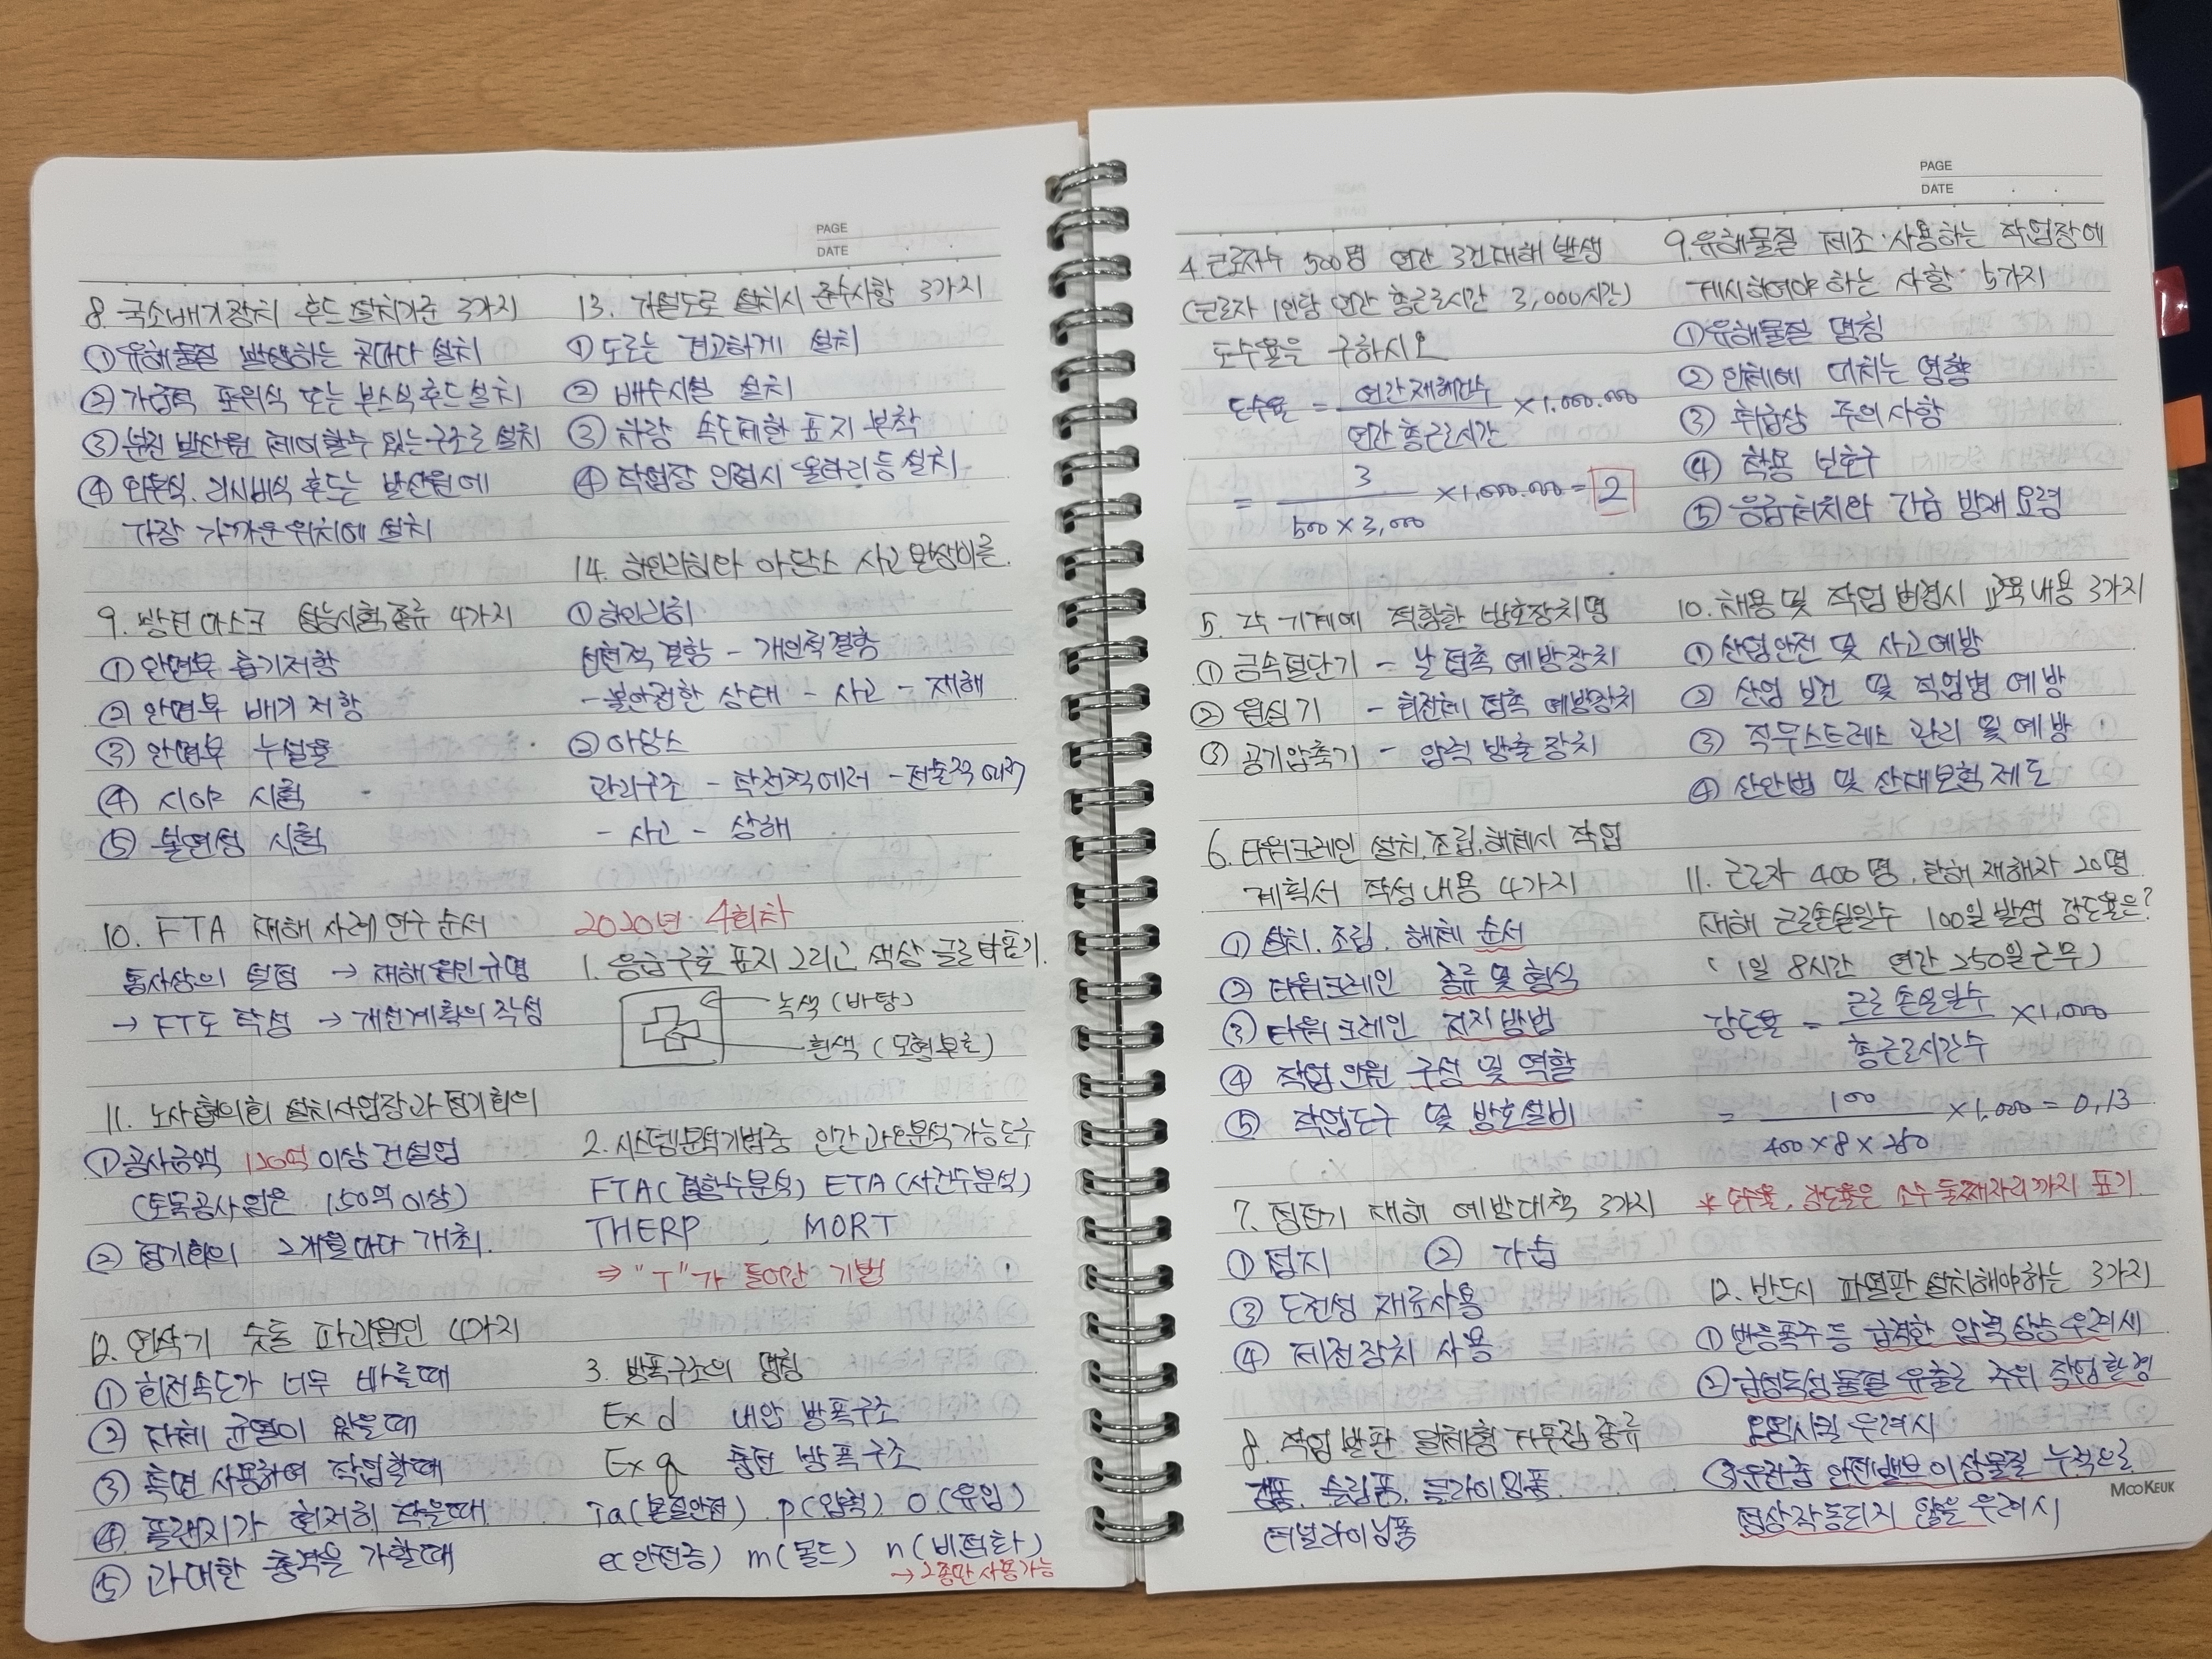 PAGE
DATE
8. 국소배기장치 후드 설치기준 3가지
① 유해물질 발생하는 곳마다 설치
② 가급적 포위식 또는 부스식 후드 설치
③ 분진 발산원 제어할수 있는 구조로 설치
④ 외부식, 리시버식 후드는 발산원에
가장 가까운 위치에 설치
9. 방진마스크 성능시험 종류 4가지
① 안면부 흡기저항
② 안면부 배기저항
③ 안면부 누설율
④ 시야 시험
⑤ 불연성 시험
10. FTA 재해 사례 연구 순서
톱사상의 설정 → 재해 원인 규명
→ FT도 작성 → 개선계획의 작성
11. 노사협의회 설치사업장과 정기회의
① 공사금액 120억 이상 건설업
(토목공사업은 150억 이상)
② 정기회의 2개월마다 개최.
12. 연삭기 숫돌 파괴원인 4가지
① 회전속도가 너무 빠를때
② 자체 균열이 있을때
③ 측면 사용하여 작업할때
④ 플랜지가 현저히 작을때
⑤ 과대한 충격을 가할때
13. 가설도로 설치시 준수사항 3가지
① 도로는 견고하게 설치
② 배수시설 설치
③ 차량 속도제한 표지 부착
④ 작업장 인접시 울타리 등 설치
14. 하인리히와 아담스 사고 연쇄이론.
① 하인리히
선천적 결함 - 개인적 결함
- 불안전한 상태 - 사고 - 재해
② 아담스
관리구조 - 작전적에러 - 전술적에러
- 사고 - 상해
2020년 4회차
1. 응급구호 표지 그리고 색상 글로 나타내기.
녹색 (바탕)
흰색 (모형부호)
2. 시스템분석기법중 인간과오분석 가능도구
FTA (결함수분석) ETA (사건수분석)
THERP , MORT
⇒ "T"가 들어간 기법
3. 방폭구조의 명칭
Ex d 내압 방폭구조
Ex q 충전 방폭구조
ia (본질안전) p (압력) o (유입)
e (안전증) m (몰드) n (비점화)
→ 2종만 사용가능
PAGE
DATE
4. 근로자수 500명 연간 3건재해 발생
(근로자 1인당 연간 총근로시간 3,000시간)
도수율을 구하시오
도수율 = 연간재해건수 / 연간 총근로시간 × 1,000,000
= 3 / 500 × 3,000 × 1,000,000 = 2
5. 각 기계에 적합한 방호장치명
① 금속절단기 - 날 접촉 예방장치
② 원심기 - 회전체 접촉 예방장치
③ 공기압축기 - 압력 방출 장치
6. 타워크레인 설치, 조립, 해체시 작업
계획서 작성내용 4가지
① 설치, 조립, 해체 순서
② 타워크레인 종류 및 형식
③ 타워크레인 지지방법
④ 작업 인원 구성 및 역할
⑤ 작업도구 및 방호설비
7. 정전기 재해 예방대책 3가지
① 접지 ② 가습
③ 도전성 재료사용
④ 제전장치 사용
8. 작업 발판 일체형 거푸집 종류
갱폼, 슬립폼, 클라이밍폼,
터널라이닝폼
9. 유해물질 제조·사용하는 작업장에
게시하여야 하는 사항 5가지
① 유해물질 명칭
② 인체에 미치는 영향
③ 취급상 주의사항
④ 착용 보호구
⑤ 응급처치와 긴급 방재 요령
10. 채용 및 작업 변경시 교육내용 3가지
① 산업안전 및 사고예방
② 산업 보건 및 직업병 예방
③ 직무스트레스 관리 및 예방
④ 산안법 및 산재보험 제도
11. 근로자 400명, 한해 재해자 20명
재해 근로손실일수 100일 발생 강도율은?
(1일 8시간 연간 250일 근무)
강도율 = 근로 손실일수 / 총근로시간수 × 1,000
= 100 / 400 × 8 × 250 × 1,000 = 0,13
* 도수율, 강도율은 소수 둘째자리까지 표기
12. 반드시 파열판 설치해야하는 3가지
① 반응폭주 등 급격한 압력 상승 우려시
② 급성독성물질 유출로 주위 작업환경
오염시킬 우려시
③ 운전중 안전밸브 이상물질 누적으로
정상작동되지 않을 우려시
MOOKEUK